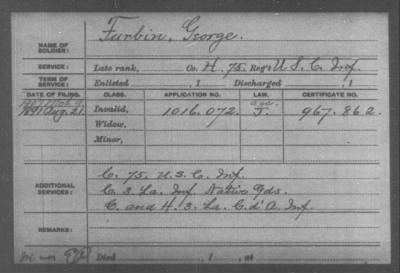 NAME OF SOLDIER: Furbin, George.
SERVICE: Late rank, Co. H, 75. Reg't U.S.C. Inf.
TERM OF SERVICE: Enlisted , 1 Discharged , 1
DATE OF FILING. CLASS. APPLICATION NO. LAW. CERTIFICATE NO.
1891 Aug. 21. Invalid, 1016.072. J. 967.862
Widow,
Minor,
ADDITIONAL SERVICES: C. 75. U.S.C. Inf.
C. 3. La. Inf. Native Gds.
C. and H. 3. La. C. d'A. Inf.
REMARKS:
Died , 1 , at